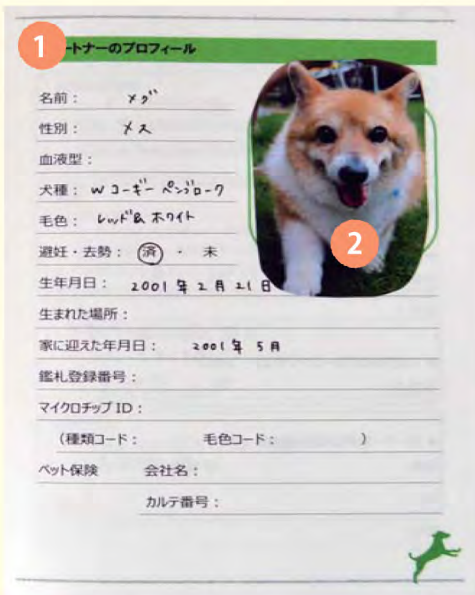 1
トナーのプロフィール
名前： メグ
性別： メス
血液型：
犬種： Wコーギー ペンブローク
毛色： レッド&ホワイト
避妊・去勢： 済 ・ 未
2
生年月日： 2001年2月21日
生まれた場所：
家に迎えた年月日： 2001年 5月
鑑札登録番号：
マイクロチップID：
（種類コード： 毛色コード： ）
ペット保険 会社名：
カルテ番号：